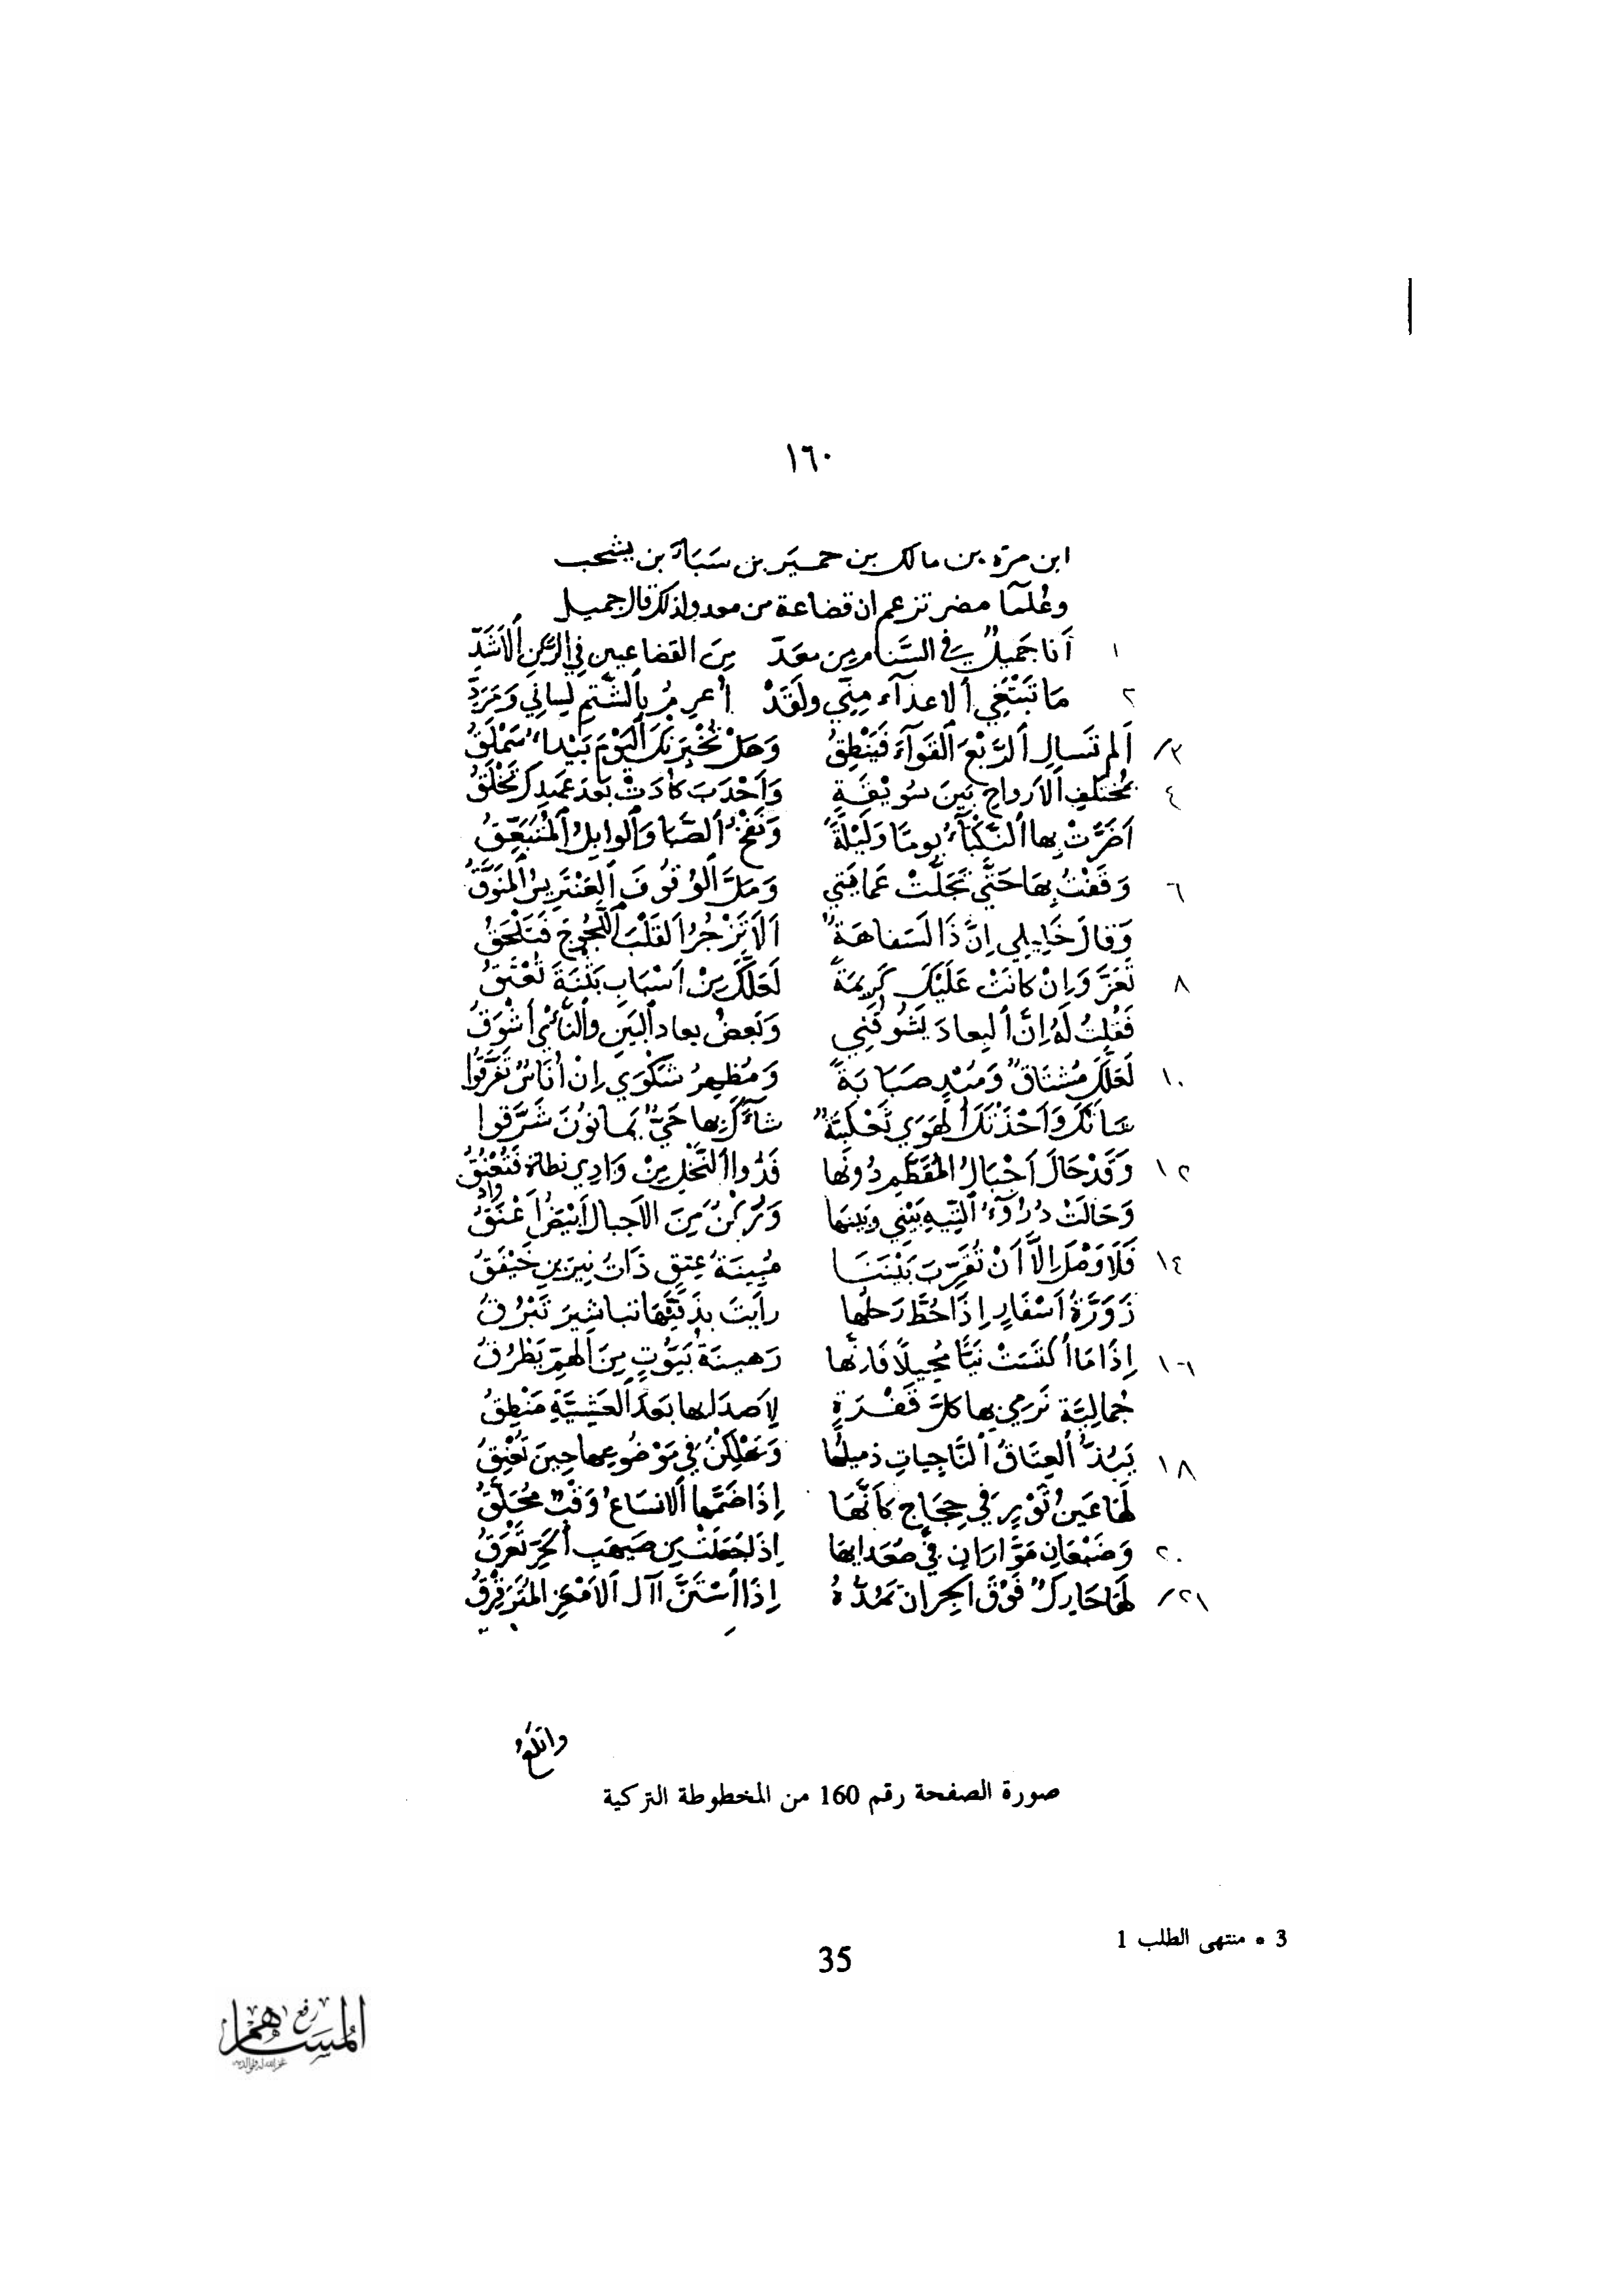 ١٦٠
ابن مرة بن مالك بن حمير بن سبأ بن يشحب
وعُلمآ مضر تزعم ان قضاعة من معد ولذلك قال جميل
١ أَنا جَميلٌ في السَّنام من معَدّ مِنَ القضاعيين في الرُّكنِ الأَشَدّ
٢ مَا تَبْتَغي الاعدآء مِنّي ولَقَدْ أُعرِمُ بالشَّتمِ لِساني وَمَرَدّ
٣/ أَلم تَسأل الرَّبْعَ القَوآءَ فَيَنْطِقُ وَهَلْ تُخْبِرَنْكَ اليَوْمَ بَيْداءُ سَمْلَقُ
٤ بمُختَلَفِ الأَرواحِ بَينَ سُوَيْقَةٍ وَأَحْدَبَ كادَتْ بَعدَ عَهدِكَ تَخْلَقُ
أَضَرَّتْ بها النَّكْبَآءُ يومًا وَلَيْلَةً وَنَفْحُ الصَّبا وَالوابِلُ المُتَبَعِّقُ
٦ وَقَفْتُ بِهَا حَتَّى تَجَلَّتْ عَمَايَتي وَمَلَّ الوُقوفَ العَنْتَرِيسُ المُنَوَّقُ
وَقالَ خَليلي إِنَّ ذَا لَسَفاهَةٌ أَلَا تَزْجُرُ القَلْبَ اللَّجُوجَ فَتَلْحَقُ
٨ تَعَزَّ وَإِنْ كانَتْ عَلَيْكَ كَرِيمَةً لَعَلَّكَ مِنْ أَسْبَابِ بَثْنَةَ تُعْتَقُ
فَقُلتُ لَهُ إِنَّ البِعادَ يَشُوقُنِي وَبَعضُ بِعادِ البَينِ والنَّأْيِ أَشْوَقُ
١٠ لَعَلَّكَ مُشتاقٌ وَمُبْدٍ صَبَابَةً وَمُظهِرُ شَكْوَى إِنْ أُناسٌ تَفَرَّقُوا
شآكَ بها حَيٌّ يمانونَ شَرَّقوا
١٢ وَقَدْ حَالَ أَجْبَالُ المُقَطَّمِ دُونَها فَذُو النَّخْلِ مِنْ وَادِي نطاة فَتُعْنُقُ
وَحَالَتْ دُرُوآءُ التِّيهِ بَيْني وبَينها وَرُكْنٌ مِنَ الأَجبالِ أَبْيَضُ أَعْنَقُ
واد
١٤ فَلَا وَصْلَ إِلَّا أَنْ تُقَرِّبَ بَيْنَنَا مُبِينَةُ عِتقٍ ذَاتُ نِيرَينِ خَيْفَقُ
زَوَرَّةُ أَسْفَارٍ إِذَا حُطَّ رَحلُها رأَيتَ بدَفَّيْهَا تباشيرَ تَبْرُقُ
١٦ إِذَا مَا اكتَسَتْ نَيًّا مُحيلًا فَإِنَّها رَهينَةُ بَيُّوتٍ مِنَ الهَمِّ يَطْرُقُ
جُماليَّة نَرْمِي بها كلَّ قَفْرَةٍ لأَصدائها بَعدَ العَشِيَّةِ مَنْطِقُ
١٨ يَبُذُّ العِتَاقَ النَّاجِياتِ ذميلُها وَتَهْلِكُ في مَوْضُوعِها حِينَ تُعْنِقُ
لَها عَينُ ثَوْرٍ في حِجَاجٍ كَأَنَّهَا إِذَا ضَمَّها الأنساعُ وَقْتٌ مُحَلَّقُ
٢٠ وَضَبْعَانِ مَوَّارَانِ في صُعَدَائِهَا إِذَا جَعَلَتْ مِن صَيهَبِ الحَرِّ تَعْرَقُ
٢١/ لَها حَارِكٌ فَوْقَ الجِرانِ تَمُدُّهُ إِذَا اسْتَنَّ آلُ الأَمْعَزِ المُتَرَقْرِقُ
واتلعُ
صورة الصفحة رقم 160 من المخطوطة التركية
3 * منتهى الطلب 1
35
رفع المساهم
غفر الله له ولوالديه